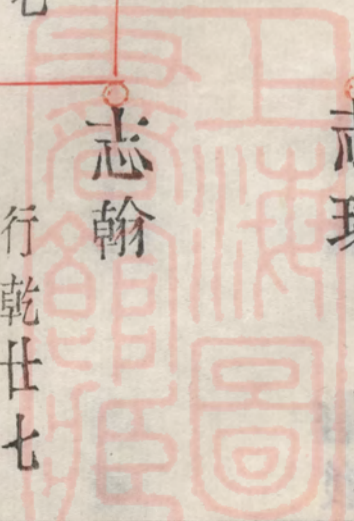 志翰
行乾廿七
上海圖書館藏